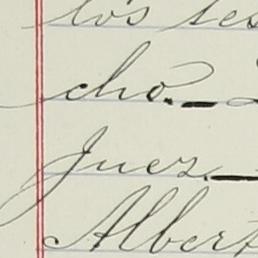 los tes
cho.—
Juez.—
Albert